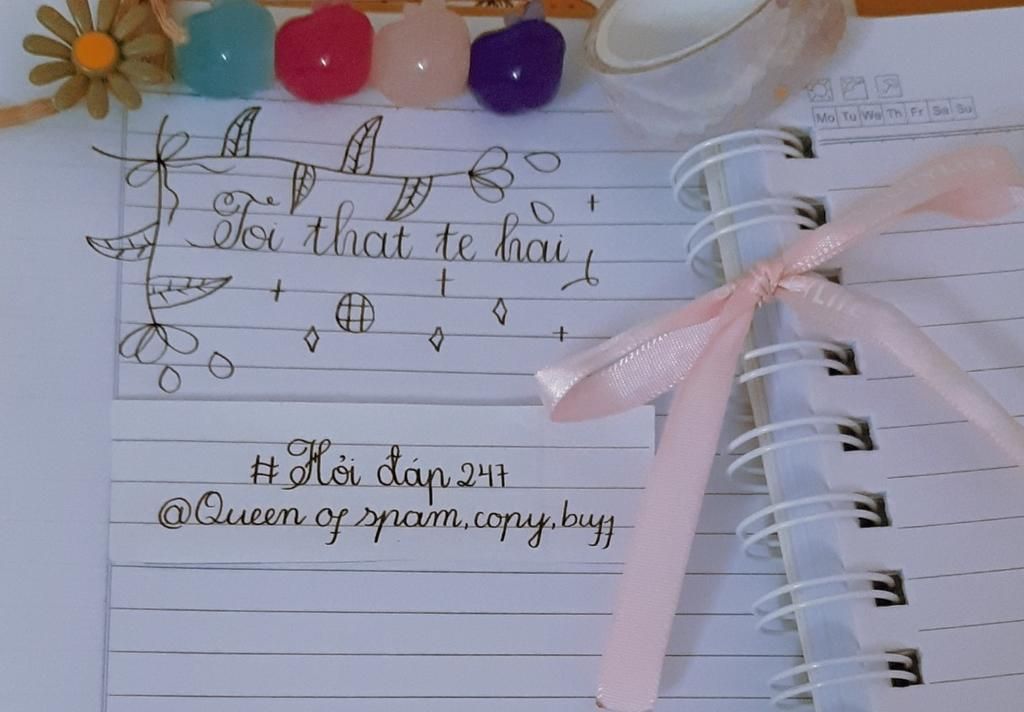 Mo Tu We Th Fr Sa Su
Toi that te hai
#Hỏi đáp 247
@Queen of spam, copy, buff